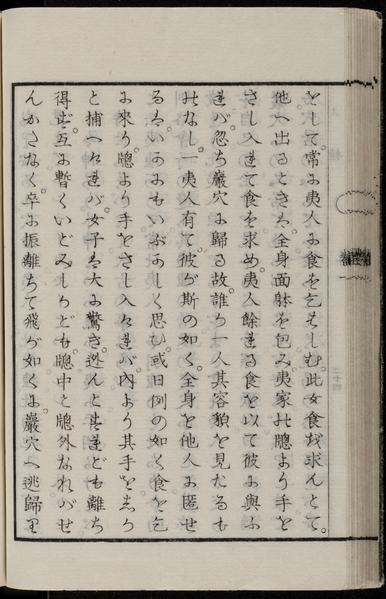 をして。常に夷人に食を乞はしむ。此女食を求んとて。
他へ出るときは。全身面躰を包み夷家の牕より手を
さし入れて食を求め。夷人餘れる食を以て彼に與ふ
れば。忽ち巖穴に歸る故。誰か一人其容貌を見たるも
のなし。一夷人有て。彼が斯の如く。全身を他人に匿せ
るはいかにもいぶかしく思ひ。或日例の如く食を乞
に來り。牕より手をさし入ければ。内より其手をしか
と捕へければ。女子は大に驚き。迯んとすれども離ち
得ず。互に暫くいどみしかども。牕中と牕外なればせ
んかたなく。卒に振離ちて飛が如くに。巖穴へ逃歸り